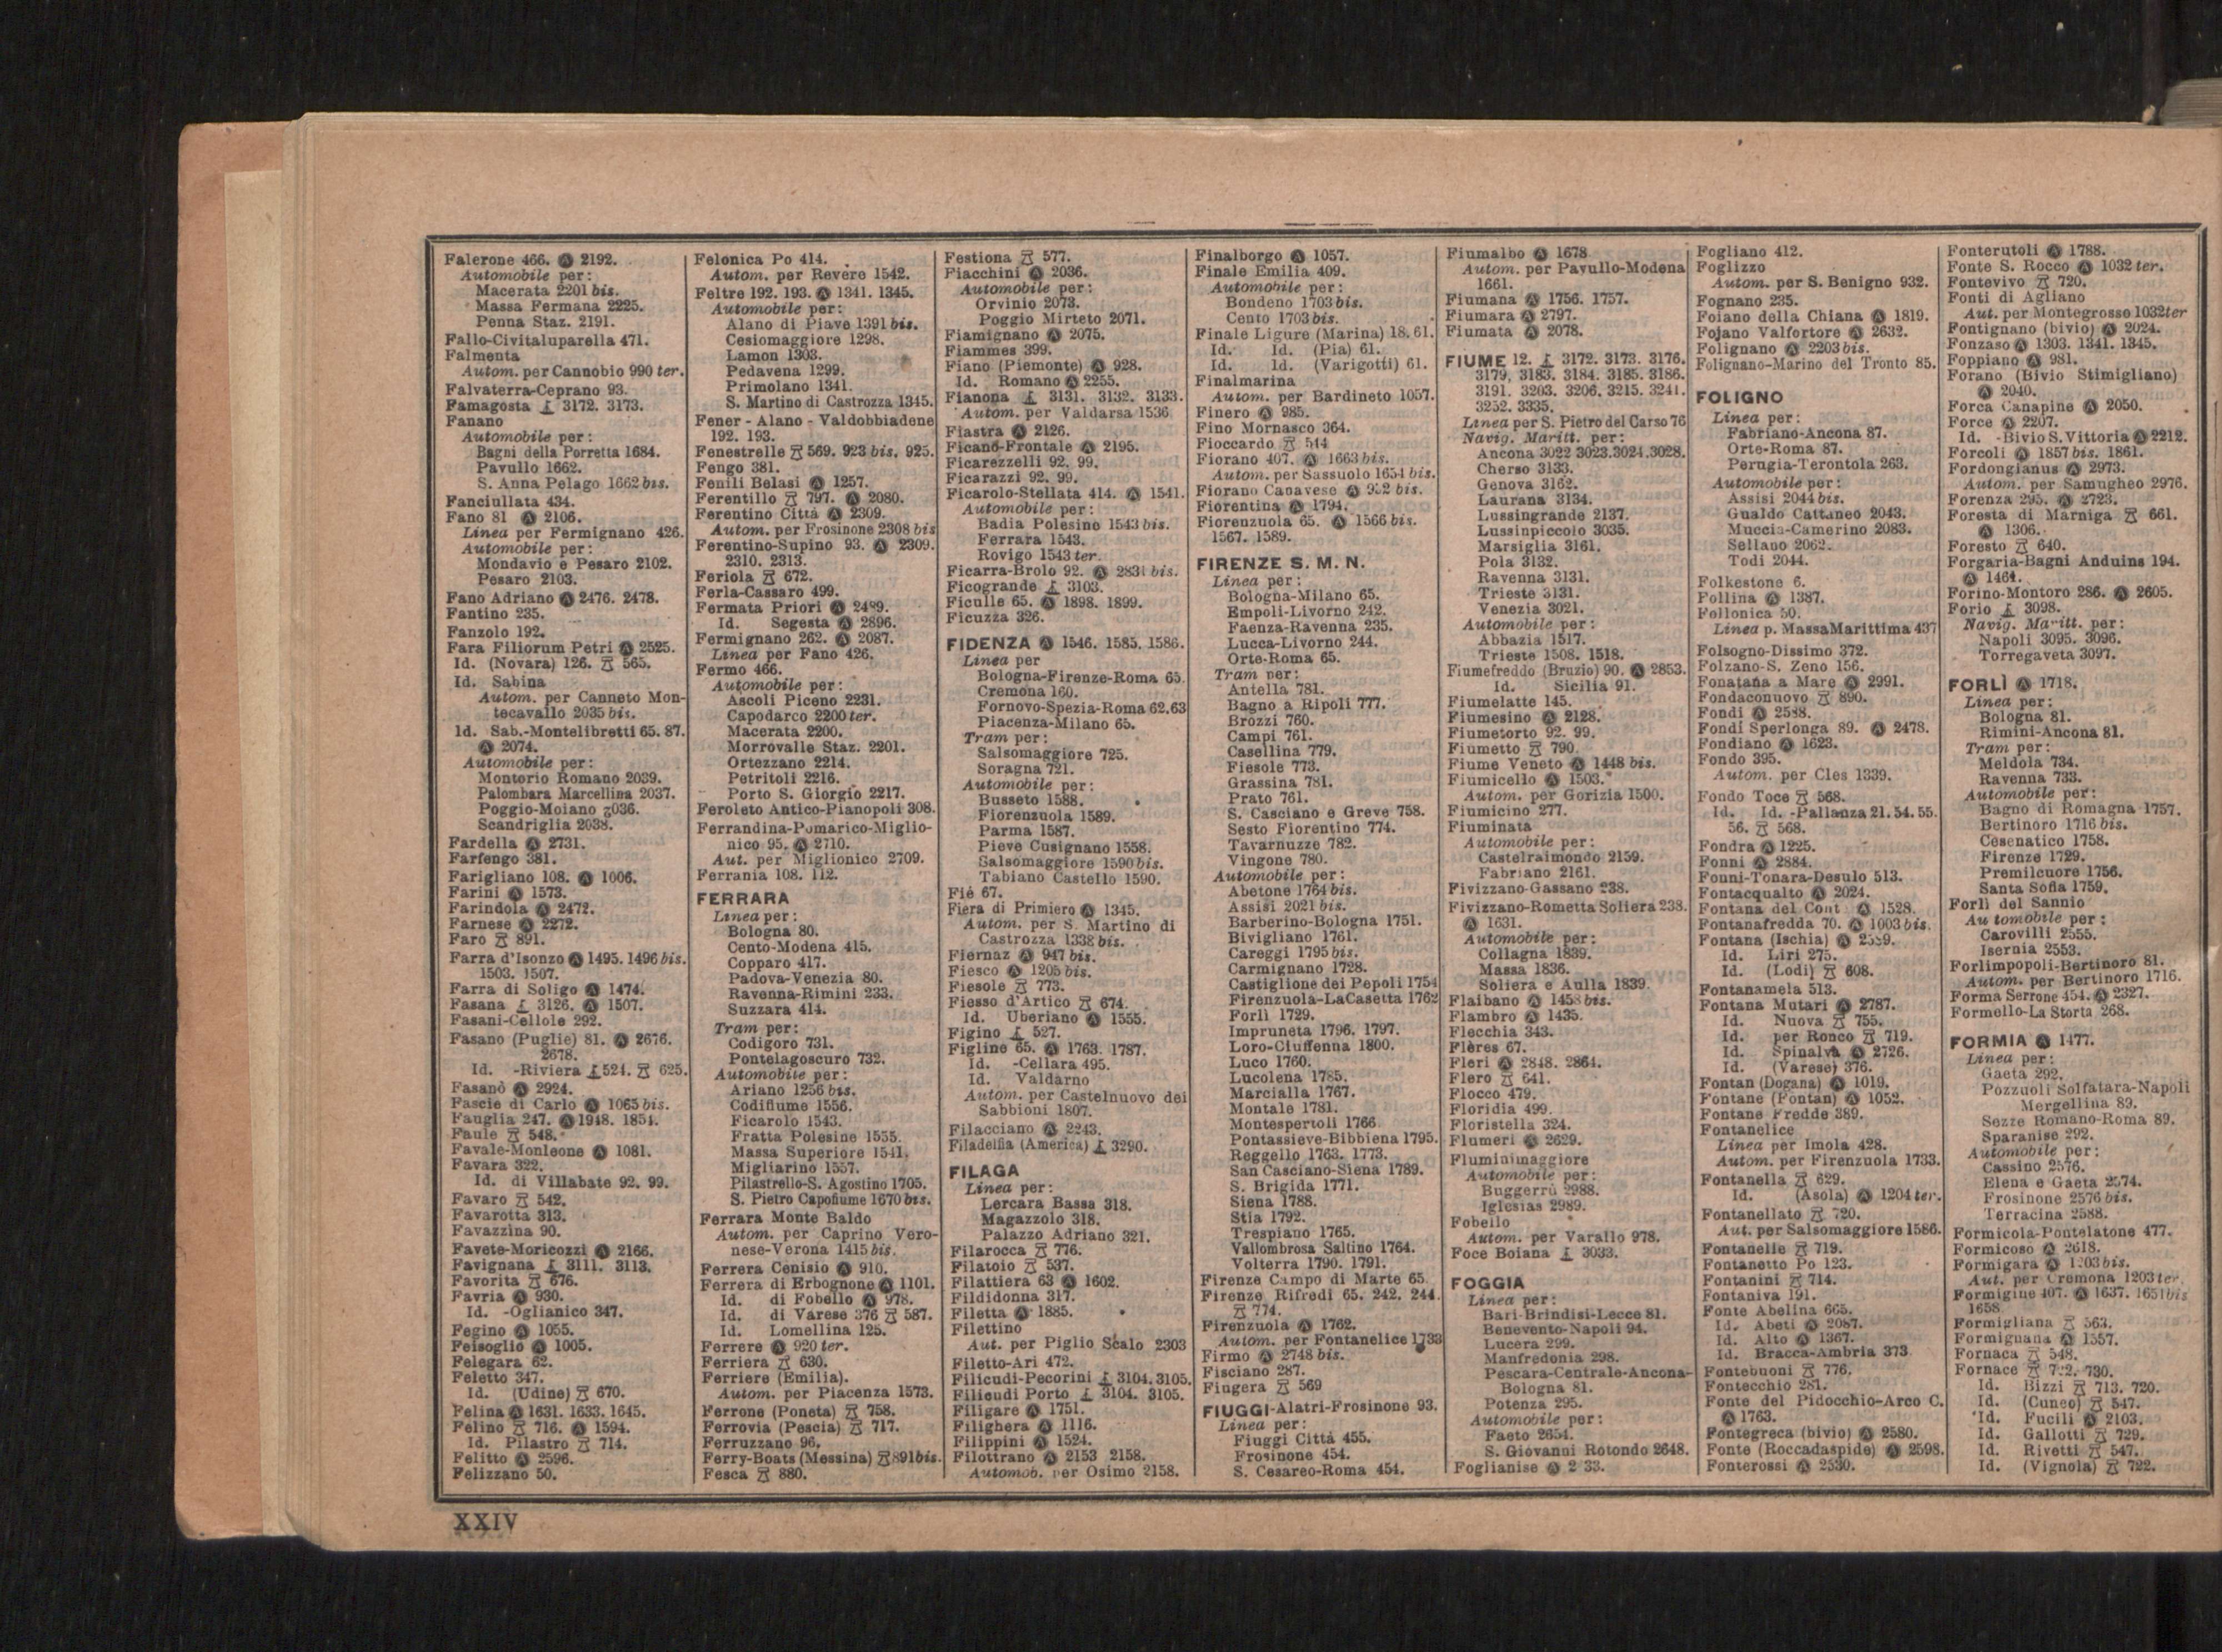 Falerone 466. Ⓐ 2192.
Automobile per:
Macerata 2201 bis.
Massa Fermana 2225.
Penna Staz. 2191.
Fallo-Civitaluparella 471.
Falmenta
Autom. per Cannobio 990 ter.
Falvaterra-Ceprano 93.
Famagosta 3172. 3173.
Fanano
Automobile per:
Bagni della Porretta 1684.
Pavullo 1662.
S. Anna Pelago 1662 bis.
Fanciullata 434.
Fano 81 Ⓐ 2106.
Linea per Fermignano 426.
Automobile per:
Mondavio e Pesaro 2102.
Pesaro 2103.
Fano Adriano Ⓐ 2476. 2478.
Fantino 235.
Fanzolo 192.
Fara Filiorum Petri Ⓐ 2525.
Id. (Novara) 126. 565.
Id. Sabina
Autom. per Canneto Mon-
tecavallo 2035 bis.
Id. Sab.-Montelibretti 65. 87.
Ⓐ 2074.
Automobile per:
Montorio Romano 2039.
Palombara Marcellina 2037.
Poggio-Moiano 2036.
Scandriglia 2038.
Fardella Ⓐ 2731.
Farfengo 381.
Farigliano 108. Ⓐ 1006.
Farini Ⓐ 1573.
Farindola Ⓐ 2472.
Farnese Ⓐ 2272.
Faro 891.
Farra d'Isonzo Ⓐ 1495. 1496 bis.
1503. 1507.
Farra di Soligo Ⓐ 1474.
Fasana 3126. Ⓐ 1507.
Fasani-Cellole 292.
Fasano (Puglie) 81. Ⓐ 2676.
2678.
Id. -Riviera 524. 625.
Fasanò Ⓐ 2924.
Fascie di Carlo Ⓐ 1065 bis.
Fauglia 247. Ⓐ 1948. 1854.
Faule 548.
Favale-Monleone Ⓐ 1081.
Favara 322.
Id. di Villabate 92. 99.
Favaro 542.
Favarotta 313.
Favazzina 90.
Favete-Moricozzi Ⓐ 2166.
Favignana 3111. 3113.
Favorita 676.
Favria Ⓐ 930.
Id. -Oglianico 347.
Fegino Ⓐ 1055.
Feisoglio Ⓐ 1005.
Felegara 62.
Feletto 347.
Id. (Udine) 670.
Felina Ⓐ 1631. 1633. 1645.
Felino 716. Ⓐ 1594.
Id. Pilastro 714.
Felitto Ⓐ 2596.
Felizzano 50.
Felonica Po 414.
Autom. per Revere 1542.
Feltre 192. 193. Ⓐ 1341. 1345.
Automobile per:
Alano di Piave 1391 bis.
Cesiomaggiore 1298.
Lamon 1303.
Pedavena 1299.
Primolano 1341.
S. Martino di Castrozza 1345.
Fener - Alano - Valdobbiadene
192. 193.
Fenestrelle 569. 923 bis. 925.
Fengo 381.
Fenili Belasi Ⓐ 1257.
Ferentillo 797. Ⓐ 2080.
Ferentino Città Ⓐ 2309.
Autom. per Frosinone 2308 bis
Ferentino-Supino 93. Ⓐ 2309.
2310. 2313.
Feriola 672.
Ferla-Cassaro 499.
Fermata Priori Ⓐ 2489.
Id. Segesta Ⓐ 2896.
Fermignano 262. Ⓐ 2087.
Linea per Fano 426.
Fermo 466.
Automobile per:
Ascoli Piceno 2231.
Capodarco 2200 ter.
Macerata 2200.
Morrovalle Staz. 2201.
Ortezzano 2214.
Petritoli 2216.
Porto S. Giorgio 2217.
Feroleto Antico-Pianopoli 308.
Ferrandina-Pomarico-Miglio-
nico 95. Ⓐ 2710.
Aut. per Miglionico 2709.
Ferrania 108. 112.
FERRARA
Linea per:
Bologna 80.
Cento-Modena 415.
Copparo 417.
Padova-Venezia 80.
Ravenna-Rimini 233.
Suzzara 414.
Tram per:
Codigoro 731.
Pontelagoscuro 732.
Automobile per:
Ariano 1256 bis.
Codifiume 1556.
Ficarolo 1543.
Fratta Polesine 1555.
Massa Superiore 1541.
Migliarino 1557.
Pilastrello-S. Agostino 1705.
S. Pietro Capofiume 1670 bis.
Ferrara Monte Baldo
Autom. per Caprino Vero-
nese-Verona 1415 bis.
Ferrera Cenisio Ⓐ 910.
Ferrera di Erbognone Ⓐ 1101.
Id. di Fobello Ⓐ 978.
Id. di Varese 376 587.
Id. Lomellina 125.
Ferrere Ⓐ 920 ter.
Ferriera 630.
Ferriere (Emilia).
Autom. per Piacenza 1573.
Ferrone (Poneta) 758.
Ferrovia (Pescia) 717.
Ferruzzano 96.
Ferry-Boats (Messina) 891bis.
Fesca 880.
Festiona 577.
Fiacchini Ⓐ 2036.
Automobile per:
Orvinio 2073.
Poggio Mirteto 2071.
Fiamignano Ⓐ 2075.
Fiammes 399.
Fiano (Piemonte) Ⓐ 928.
Id. Romano Ⓐ 2255.
Fianona 3131. 3132. 3133.
Autom. per Valdarsa 1536
Fiastra Ⓐ 2126.
Ficano-Frontale Ⓐ 2195.
Ficarezzelli 92. 99.
Ficarazzi 92. 99.
Ficarolo-Stellata 414. Ⓐ 1541.
Automobile per:
Badia Polesine 1543 bis.
Ferrara 1543.
Rovigo 1543 ter.
Ficarra-Brolo 92. Ⓐ 2831 bis.
Ficogrande 3103.
Ficulle 65. Ⓐ 1898. 1899.
Ficuzza 326.
FIDENZA Ⓐ 1546. 1585. 1586.
Linea per
Bologna-Firenze-Roma 65.
Cremona 160.
Fornovo-Spezia-Roma 62.63
Piacenza-Milano 65.
Tram per:
Salsomaggiore 725.
Soragna 721.
Automobile per:
Busseto 1588.
Fiorenzuola 1589.
Parma 1587.
Pieve Cusignano 1558.
Salsomaggiore 1590 bis.
Tabiano Castello 1590.
Fié 67.
Fiera di Primiero Ⓐ 1345.
Autom. per S. Martino di
Castrozza 1338 bis.
Fiernaz Ⓐ 947 bis.
Fiesco Ⓐ 1205 bis.
Fiesole 773.
Fiesso d'Artico 674.
Id. Uberiano Ⓐ 1555.
Figino 527.
Figline 65. Ⓐ 1763. 1787.
Id. -Cellara 495.
Id. Valdarno
Autom. per Castelnuovo dei
Sabbioni 1807.
Filacciano Ⓐ 2243.
Filadelfia (America) 3290.
FILAGA
Linea per:
Lercara Bassa 318.
Magazzolo 318.
Palazzo Adriano 321.
Filarocca 776.
Filatoio 537.
Filattiera 63 Ⓐ 1602.
Fildidonna 317.
Filetta Ⓐ 1885.
Filettino
Aut. per Piglio Scalo 2303
Filetto-Ari 472.
Filicudi-Pecorini 3104. 3105.
Filicudi Porto 3104. 3105.
Filigare Ⓐ 1751.
Filighera Ⓐ 1116.
Filippini Ⓐ 1524.
Filottrano Ⓐ 2153 2158.
Automob. per Osimo 2158.
Finalborgo Ⓐ 1057.
Finale Emilia 409.
Automobile per:
Bondeno 1703 bis.
Cento 1703 bis.
Finale Ligure (Marina) 18. 61.
Id. Id. (Pia) 61.
Id. Id. (Varigotti) 61.
Finalmarina
Autom. per Bardineto 1057.
Finero Ⓐ 985.
Fino Mornasco 364.
Fioccardo 544
Fiorano 407. Ⓐ 1663 bis.
Autom. per Sassuolo 1654 bis.
Fiorano Canavese Ⓐ 952 bis.
Fiorentina Ⓐ 1794.
Fiorenzuola 65. Ⓐ 1566 bis.
1567. 1589.
FIRENZE S. M. N.
Linea per:
Bologna-Milano 65.
Empoli-Livorno 242.
Faenza-Ravenna 235.
Lucca-Livorno 244.
Orte-Roma 65.
Tram per:
Antella 781.
Bagno a Ripoli 777.
Brozzi 760.
Campi 761.
Casellina 779.
Fiesole 773.
Grassina 781.
Prato 761.
S. Casciano e Greve 758.
Sesto Fiorentino 774.
Tavarnuzze 782.
Vingone 780.
Automobile per:
Abetone 1764 bis.
Assisi 2021 bis.
Barberino-Bologna 1751.
Bivigliano 1761.
Careggi 1795 bis.
Carmignano 1728.
Castiglione dei Pepoli 1754
Firenzuola-LaCasetta 1762
Forlì 1729.
Impruneta 1796. 1797.
Loro-Ciuffenna 1800.
Luco 1760.
Lucolena 1785.
Marcialla 1767.
Montale 1781.
Montespertoli 1766
Pontassieve-Bibbiena 1795.
Reggello 1763. 1773.
San Casciano-Siena 1789.
S. Brigida 1771.
Siena 1788.
Stia 1792.
Trespiano 1765.
Vallombrosa Saltino 1764.
Volterra 1790. 1791.
Firenze Campo di Marte 65.
Firenze Rifredi 65. 242. 244.
774.
Firenzuola Ⓐ 1762.
Autom. per Fontanelice 1733
Firmo Ⓐ 2748 bis.
Fisciano 287.
Fiugera 569
FIUGGI-Alatri-Frosinone 93.
Linea per:
Fiuggi Città 455.
Frosinone 454.
S. Cesareo-Roma 454.
Fiumalbo Ⓐ 1678
Autom. per Pavullo-Modena
1661.
Fiumana Ⓐ 1756. 1757.
Fiumara Ⓐ 2797.
Fiumata Ⓐ 2078.
FIUME 12. 3172. 3173. 3176.
3179. 3183. 3184. 3185. 3186.
3191. 3203. 3206. 3215. 3241.
3252. 3335.
Linea per S. Pietro del Carso 76
Navig. Maritt. per:
Ancona 3022 3023.3024.3028.
Cherso 3133.
Genova 3162.
Laurana 3134.
Lussingrande 2137.
Lussinpiccolo 3035.
Marsiglia 3161.
Pola 3132.
Ravenna 3131.
Trieste 3131.
Venezia 3021.
Automobile per:
Abbazia 1517.
Trieste 1508. 1518.
Fiumefreddo (Bruzio) 90. Ⓐ 2853.
Id. Sicilia 91.
Fiumelatte 145.
Fiumesino Ⓐ 2128.
Fiumetorto 92. 99.
Fiumetto 790.
Fiume Veneto Ⓐ 1448 bis.
Fiumicello Ⓐ 1503.
Autom. per Gorizia 1500.
Fiumicino 277.
Fiuminata
Automobile per:
Castelraimondo 2159.
Fabriano 2161.
Fivizzano-Gassano 238.
Fivizzano-Rometta Soliera 238.
Ⓐ 1631.
Automobile per:
Collagna 1839.
Massa 1836.
Soliera e Aulla 1839.
Flaibano Ⓐ 1458 bis.
Flambro Ⓐ 1435.
Flecchia 343.
Flères 67.
Fleri Ⓐ 2848. 2864.
Flero 641.
Flocco 479.
Floridia 499.
Floristella 324.
Flumeri Ⓐ 2629.
Fluminimaggiore
Automobile per:
Buggerrù 2988.
Iglesias 2989.
Fobello
Autom. per Varallo 978.
Foce Boiana 3033.
FOGGIA
Linea per:
Bari-Brindisi-Lecce 81.
Benevento-Napoli 94.
Lucera 299.
Manfredonia 298.
Pescara-Centrale-Ancona-
Bologna 81.
Potenza 295.
Automobile per:
Faeto 2654.
S. Giovanni Rotondo 2648.
Foglianise Ⓐ
Fogliano 412.
Foglizzo
Autom. per S. Benigno 932.
Fognano 235.
Foiano della Chiana Ⓐ 1819.
Fojano Valfortore Ⓐ 2632.
Folignano Ⓐ 2203 bis.
Folignano-Marino del Tronto 85.
FOLIGNO
Linea per:
Fabriano-Ancona 87.
Orte-Roma 87.
Perugia-Terontola 263.
Automobile per:
Assisi 2044 bis.
Gualdo Cattaneo 2043.
Muccia-Camerino 2083.
Sellano 2062.
Todi 2044.
Folkestone 6.
Follina Ⓐ 1387.
Follonica 50.
Linea p. MassaMarittima 437
Folsogno-Dissimo 372.
Folzano-S. Zeno 156.
Fonatana a Mare Ⓐ 2991.
Fondaconuovo 890.
Fondi Ⓐ 2588.
Fondi Sperlonga 89. Ⓐ 2478.
Fondiano Ⓐ 1623.
Fondo 395.
Autom. per Cles 1339.
Fondo Toce 568.
Id. Id. -Pallanza 21. 54. 55.
56. 568.
Fondra Ⓐ 1225.
Fonni Ⓐ 2884.
Fonni-Tonara-Desulo 513.
Fontacqualto Ⓐ 2024.
Fontana del Cont Ⓐ 1528.
Fontanafredda 70. Ⓐ 1003 bis.
Fontana (Ischia) Ⓐ 2589.
Id. Liri 275.
Id. (Lodi) 608.
Fontanamela 513.
Fontana Mutari Ⓐ 2787.
Id. Nuova 755.
Id. per Ronco 719.
Id. Spinalva Ⓐ 2726.
Id. (Varese) 376.
Fontan (Dogana) Ⓐ 1019.
Fontane (Fontan) Ⓐ 1052.
Fontane Fredde 389.
Fontanelice
Linea per Imola 428.
Autom. per Firenzuola 1733.
Fontanella 629.
Id. (Asola) Ⓐ 1204 ter.
Fontanellato 720.
Aut. per Salsomaggiore 1586.
Fontanelle 719.
Fontanetto Po 123.
Fontanini 714.
Fontaniva 191.
Fonte Abelina 665.
Id. Abeti Ⓐ 2087.
Id. Alto Ⓐ 1367.
Id. Bracca-Ambria 373
Fontebuoni 776.
Fontecchio 281.
Fonte del Pidocchio-Arco C.
Ⓐ 1763.
Fontegreca (bivio) Ⓐ 2580.
Fonte (Roccadaspide) Ⓐ 2598.
Fonterossi Ⓐ 2530.
Fonterutoli Ⓐ 1788.
Fonte S. Rocco Ⓐ 1032 ter.
Fontevivo 720.
Fonti di Agliano
Aut. per Montegrosso 1032ter
Fontignano (bivio) Ⓐ 2024.
Fonzaso Ⓐ 1303. 1341. 1345.
Foppiano Ⓐ 981.
Forano (Bivio Stimigliano)
Ⓐ 2040.
Forca Canapine Ⓐ 2050.
Force Ⓐ 2207.
Id. -Bivio S. Vittoria Ⓐ 2212.
Forcoli Ⓐ 1857 bis. 1861.
Fordongianus Ⓐ 2973.
Autom. per Samugheo 2976.
Forenza 295. Ⓐ 2723.
Foresta di Marniga 661.
Ⓐ 1306.
Foresto 640.
Forgaria-Bagni Anduins 194.
Ⓐ 1464.
Forino-Montoro 286. Ⓐ 2605.
Forio 3098.
Navig. Maritt. per:
Napoli 3095. 3096.
Torregaveta 3097.
FORLÌ Ⓐ 1718.
Linea per:
Bologna 81.
Rimini-Ancona 81.
Tram per:
Meldola 734.
Ravenna 733.
Automobile per:
Bagno di Romagna 1757.
Bertinoro 1716 bis.
Cesenatico 1758.
Firenze 1729.
Premilcuore 1756.
Santa Sofia 1759.
Forlì del Sannio
Au tomobile per:
Carovilli 2555.
Isernia 2553.
Forlimpopoli-Bertinoro 81.
Autom. per Bertinoro 1716.
Forma Serrone 454. Ⓐ 2327.
Formello-La Storta 268.
FORMIA Ⓐ 1477.
Linea per:
Gaeta 292.
Pozzuoli Solfatara-Napoli
Mergellina 89.
Sezze Romano-Roma 89.
Sparanise 292.
Automobile per:
Cassino 2576.
Elena e Gaeta 2574.
Frosinone 2576 bis.
Terracina 2588.
Formicola-Pontelatone 477.
Formicoso Ⓐ 2618.
Formigara Ⓐ 1203 bis.
Aut. per Cremona 1203 ter.
Formigine 407. Ⓐ 1637. 1651 bis
1658.
Formigliana 563.
Formignana Ⓐ 1557.
Fornaca 548.
Fornace 722. 730.
Id. Bizzi 713. 720.
Id. (Cuneo) 547.
Id. Fucili Ⓐ 2103.
Id. Gallotti 729.
Id. Rivetti 547.
Id. (Vignola) 722.
XXIV